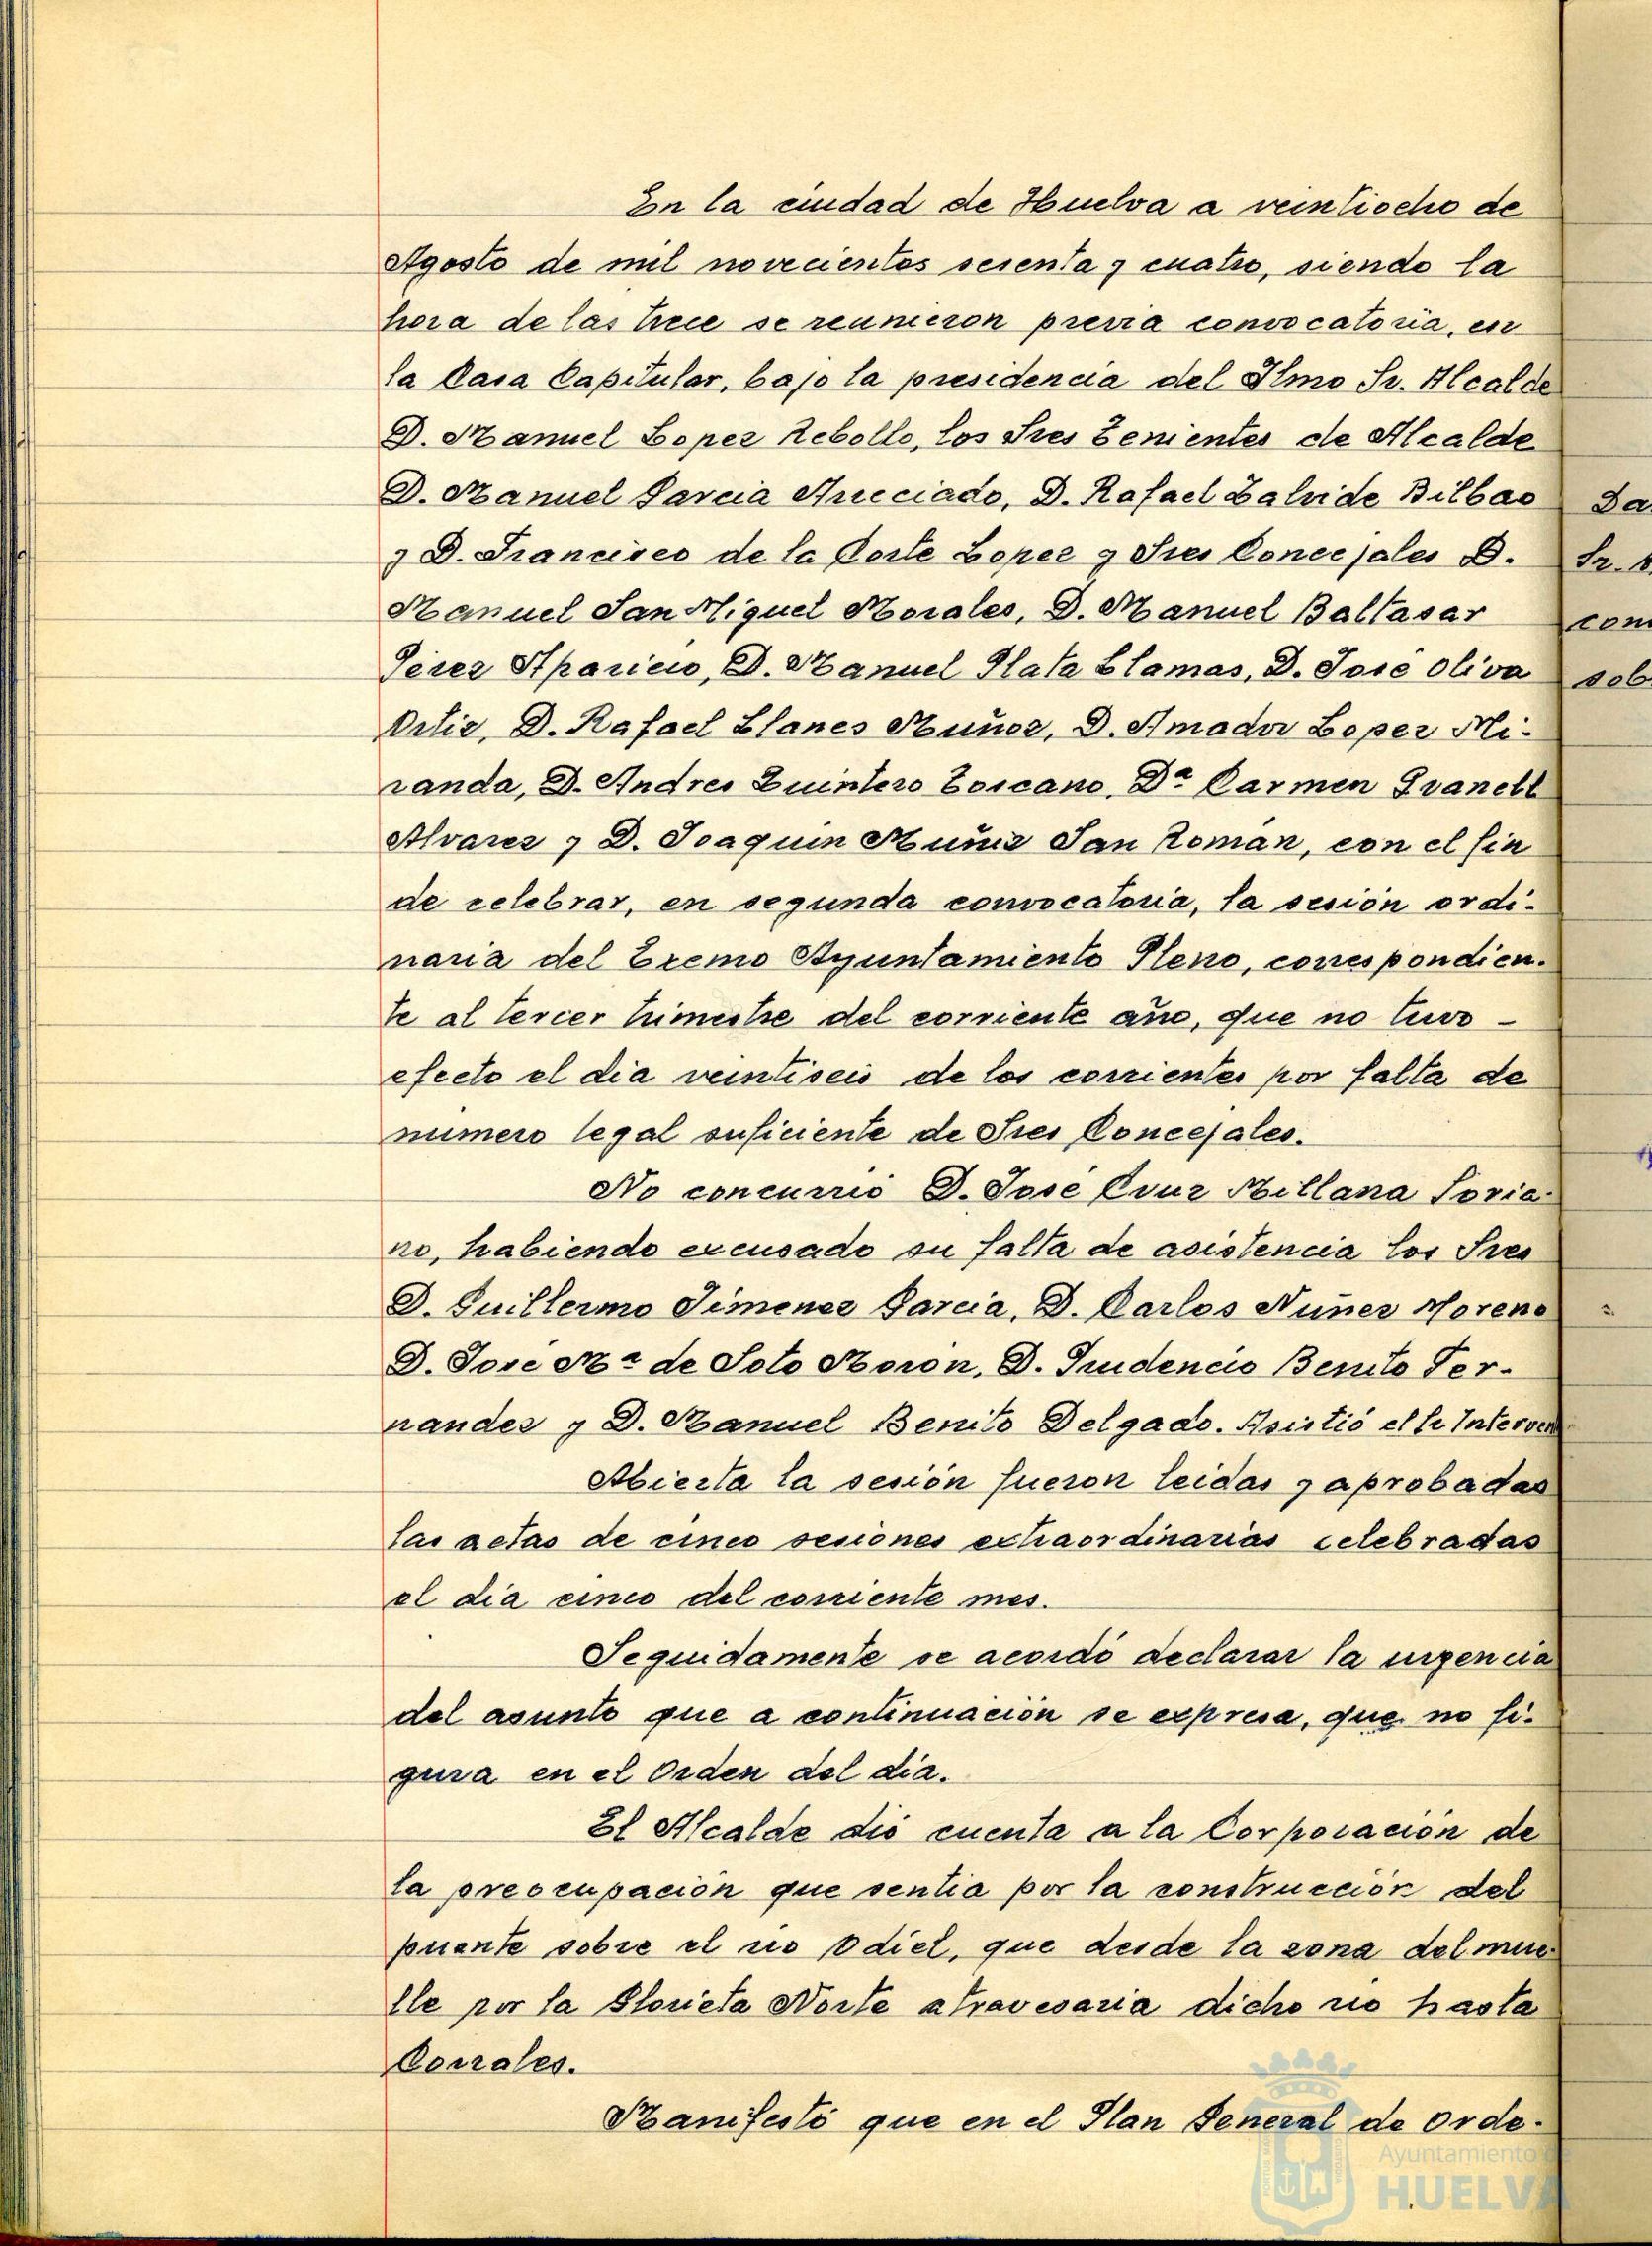 En la ciudad de Huelva a veintiocho de
Agosto de mil novecientos sesenta y cuatro, siendo la
hora de las trece se reunieron previa convocatoria, en
la Casa Capitular, bajo la presidencia del Ilmo Sr. Alcalde
D. Manuel Lopez Rebollo, los Sres Tenientes de Alcalde
D. Manuel Garcia Arreciado, D. Rafael Zalvide Bilbao
y D. Francisco de la Corte Lopez y Sres Concejales D.
Manuel San Miguel Morales, D. Manuel Baltasar
Perez Aparicio, D. Manuel Plata Llamas, D. José Oliva
Ortiz, D. Rafael Llanes Muñoz, D. Amador Lopez Mi-
randa, D. Andres Quintero Toscano, Dª Carmen Granell
Alvarez y D. Joaquin Muñiz San Román, con el fin
de celebrar, en segunda convocatoria, la sesión ordi-
naria del Excmo Ayuntamiento Pleno, correspondien-
te al tercer trimestre del corriente año, que no tuvo -
efecto el dia veintiseis de los corrientes por falta de
numero legal suficiente de Sres Concejales.
No concurrió D. José Cruz Millana Soria-
no, habiendo excusado su falta de asistencia los Sres
D. Guillermo Jimenez Garcia, D. Carlos Nuñez Moreno
D. José Mª de Soto Morón, D. Prudencio Benito Fer-
nandez y D. Manuel Benito Delgado. Asistió el Sr Interven
Abierta la sesión fueron leidas y aprobadas
las actas de cinco sesiones extraordinarias celebradas
el dia cinco del corriente mes.
Seguidamente se acordó declarar la urgencia
del asunto que a continuación se expresa, que no fi-
gura en el Orden del dia.
El Alcalde dió cuenta a la Corporación de
la preocupación que sentia por la construcción del
puente sobre el rio Odiel, que desde la zona del mue-
lle por la Glorieta Norte atravesaria dicho rio hasta
Corrales.
Manifestó que en el Plan General de Orde-
Ayuntamiento de
HUELVA